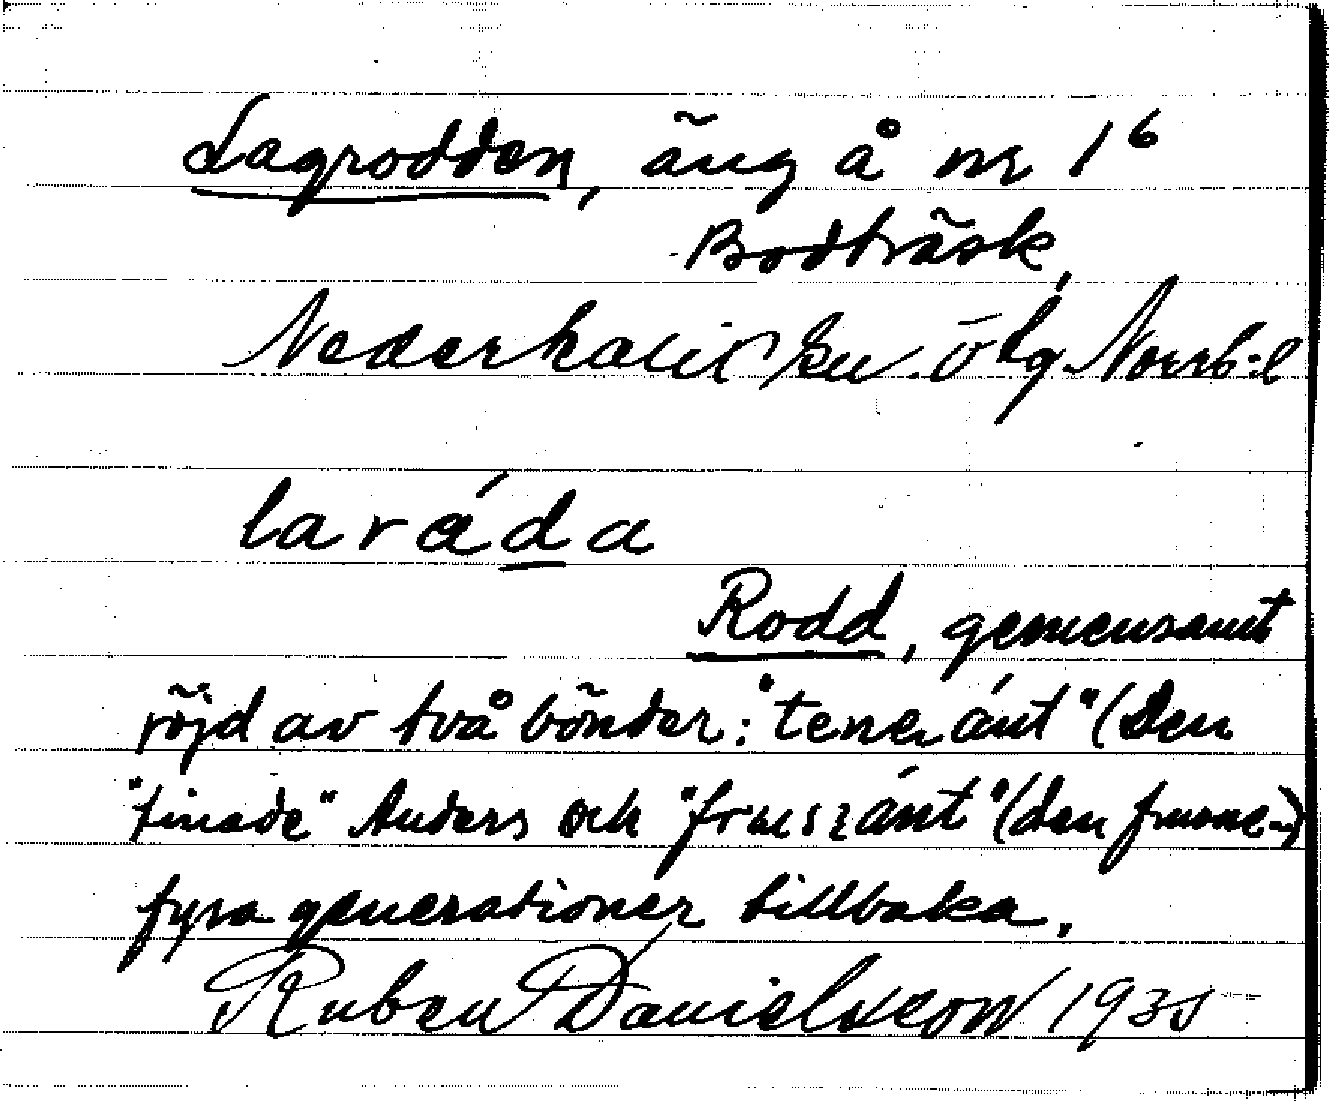 Lagrodden, äng å nr 1⁶
Bodträsk,
Nederkalix sn. Ö tg. Norrb:l
laráda
Rodd, gemensamt
röjd av två bönder: "tenaánt" (den
"tinade" Anders och "frusiánt" (den frusne-)
fyra generationer tillbaka.
Ruben Danielsson 1935